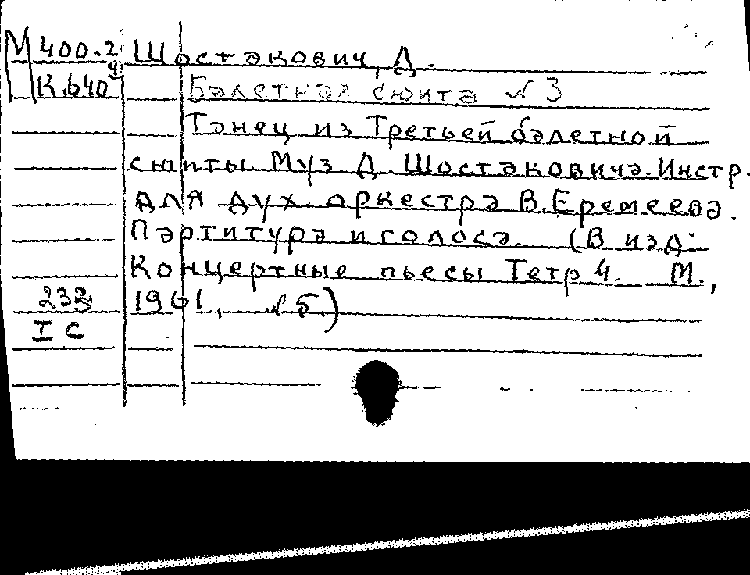 М 400.2 Шостакович, Д.
9
К.640 Балетная сюита № 3
Танец из Третьей балетной
сюиты Муз Д Шостаковича. Инстр.
для дух. оркестра В. Еремеева.
Партитура и голоса. (В изд:
Концертные пьесы Тетр 4. М.,
232 1961, № 5)
I С